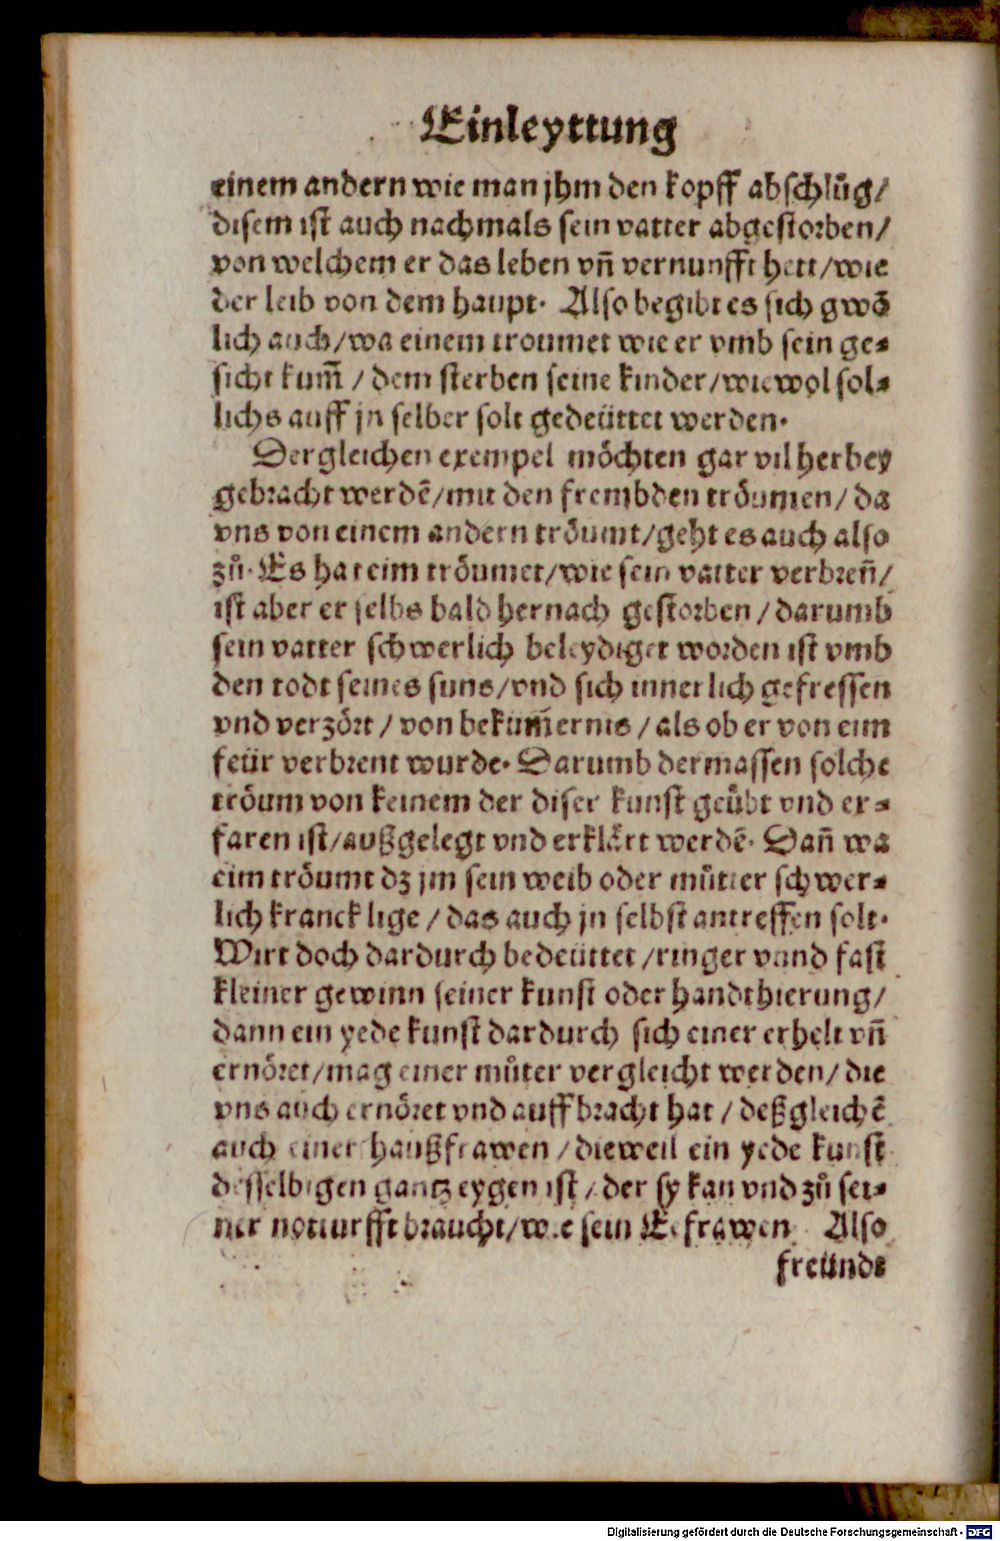 Einleyttung
einem andern wie man jhm den kopff abschlůg/
disem ist auch nachmals sein vatter abgestorben/
von welchem er das leben vñ vernunfft hett/wie
der leib von dem haupt. Also begibt es sich gwō
lich auch/wa einem troumet wie er vmb sein ge-
sicht kum̄/dem sterben seine kinder/wiewol sol-
lichs auff jn selber solt gedeüttet werden.
Dergleichen exempel möchten gar vil herbey
gebracht werdē/mit den frembden tröumen/da
vns von einem andern tröumt/geht es auch also
zů. Es hat eim tröumet/wie sein vatter verbreñ/
ist aber er selbs bald hernach gestorben/darumb
sein vatter schwerlich beleydiget worden ist vmb
den todt seines suns/vnd sich innerlich gefressen
vnd verzört/von bekům̄ernis/als ob er von eim
feür verbrent wurde. Darumb dermassen solche
tröum von keinem der diser kunst geůbt vnd er-
faren ist/außgelegt vnd erklärt werdē. Dañ wa
eim tröumt dz jm sein weib oder můtter schwer-
lich kranck lige/das auch jn selbst antreffen solt.
Wirt doch dardurch bedeüttet/ringer vnnd fast
kleiner gewinn seiner kunst oder handthierung/
dann ein yede kunst dardurch sich einer erhelt vñ
ernöret/mag einer můter vergleicht werden/die
vns auch ernöret vnd auffbracht hat/deßgleichē
auch einer haußfrawen/dieweil ein yede kunst
desselbigen gantz eygen ist/der sy kan vnd zů sei-
ner notturfft braucht/wie sein Eefrawen Also
freünds
Digitalisierung gefördert durch die Deutsche Forschungsgemeinschaft - DFG